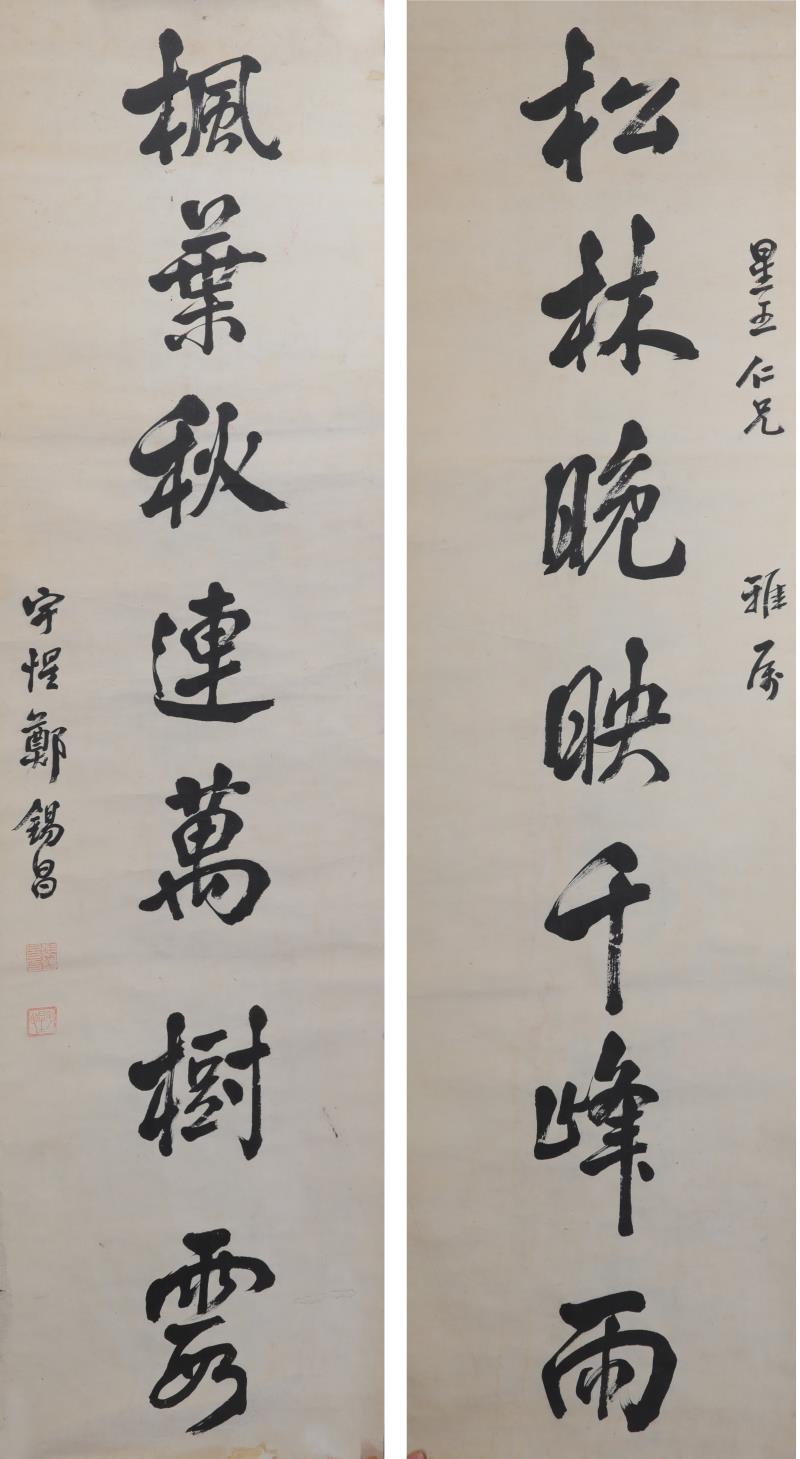 星五仁兄 雅属
松林晚映千峰雨
楓葉秋連萬樹霞
鄭錫昌